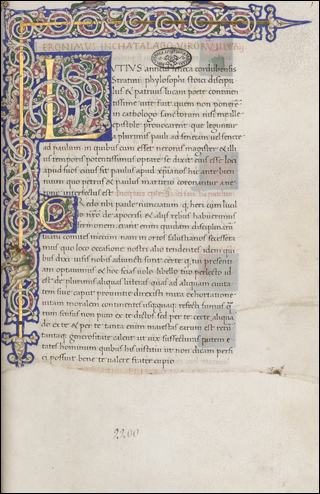 IERONIMVS IN CHATALAGO VIRORVM
LVTIVS anneus seneca cordubensis
fotini stratini phylosophi stoici discipu
lus & patruus lucani poete continen
tissime uite fuit quem non ponerem
in cathologo sanctorum nisi me ille
epistole prouocarent que leguntur
a plurimis pauli ad senecam uel senece
ad paulum in quibus cum esset neronis magister & ill
ius temporis potentissimus optare se dixit eius esse loci
apud suos cuius sit paulus apud xpianos hic ante bien
nium quo petrus & paulus martirio coronarentur a ne
rone interfectus est
Credo tibi paule nunciatum quod heri cum lucil
io nostro de apocrifis & aliis rebus habuerimus
sermonem erant enim quidam disciplinarum
tuarum comites mecum nam in ortos salustianos secesse
mus quo loco occasione nostri alio tendentes idem qui
bus dixi uisis nobis adiuncti sunt certe quod tui presenti
am optauimus & hoc scias uolo libello tuo perfecto id
est de plurimis aliquas literas quas ad aliquam ciuita
tem siue caput prouintie direxisti mira exhortatione
uitam moralem continentes usquequaque refecti sumus quos
sensus non puto ex te dictos sed per te certe aliquando
ex te & per te tanta enim maiestas earum est rerum
tantaque generositate calent ut uix suffecturas putem e
tates hominum quibus his institui
possint bene te ualere frater cupio
2200